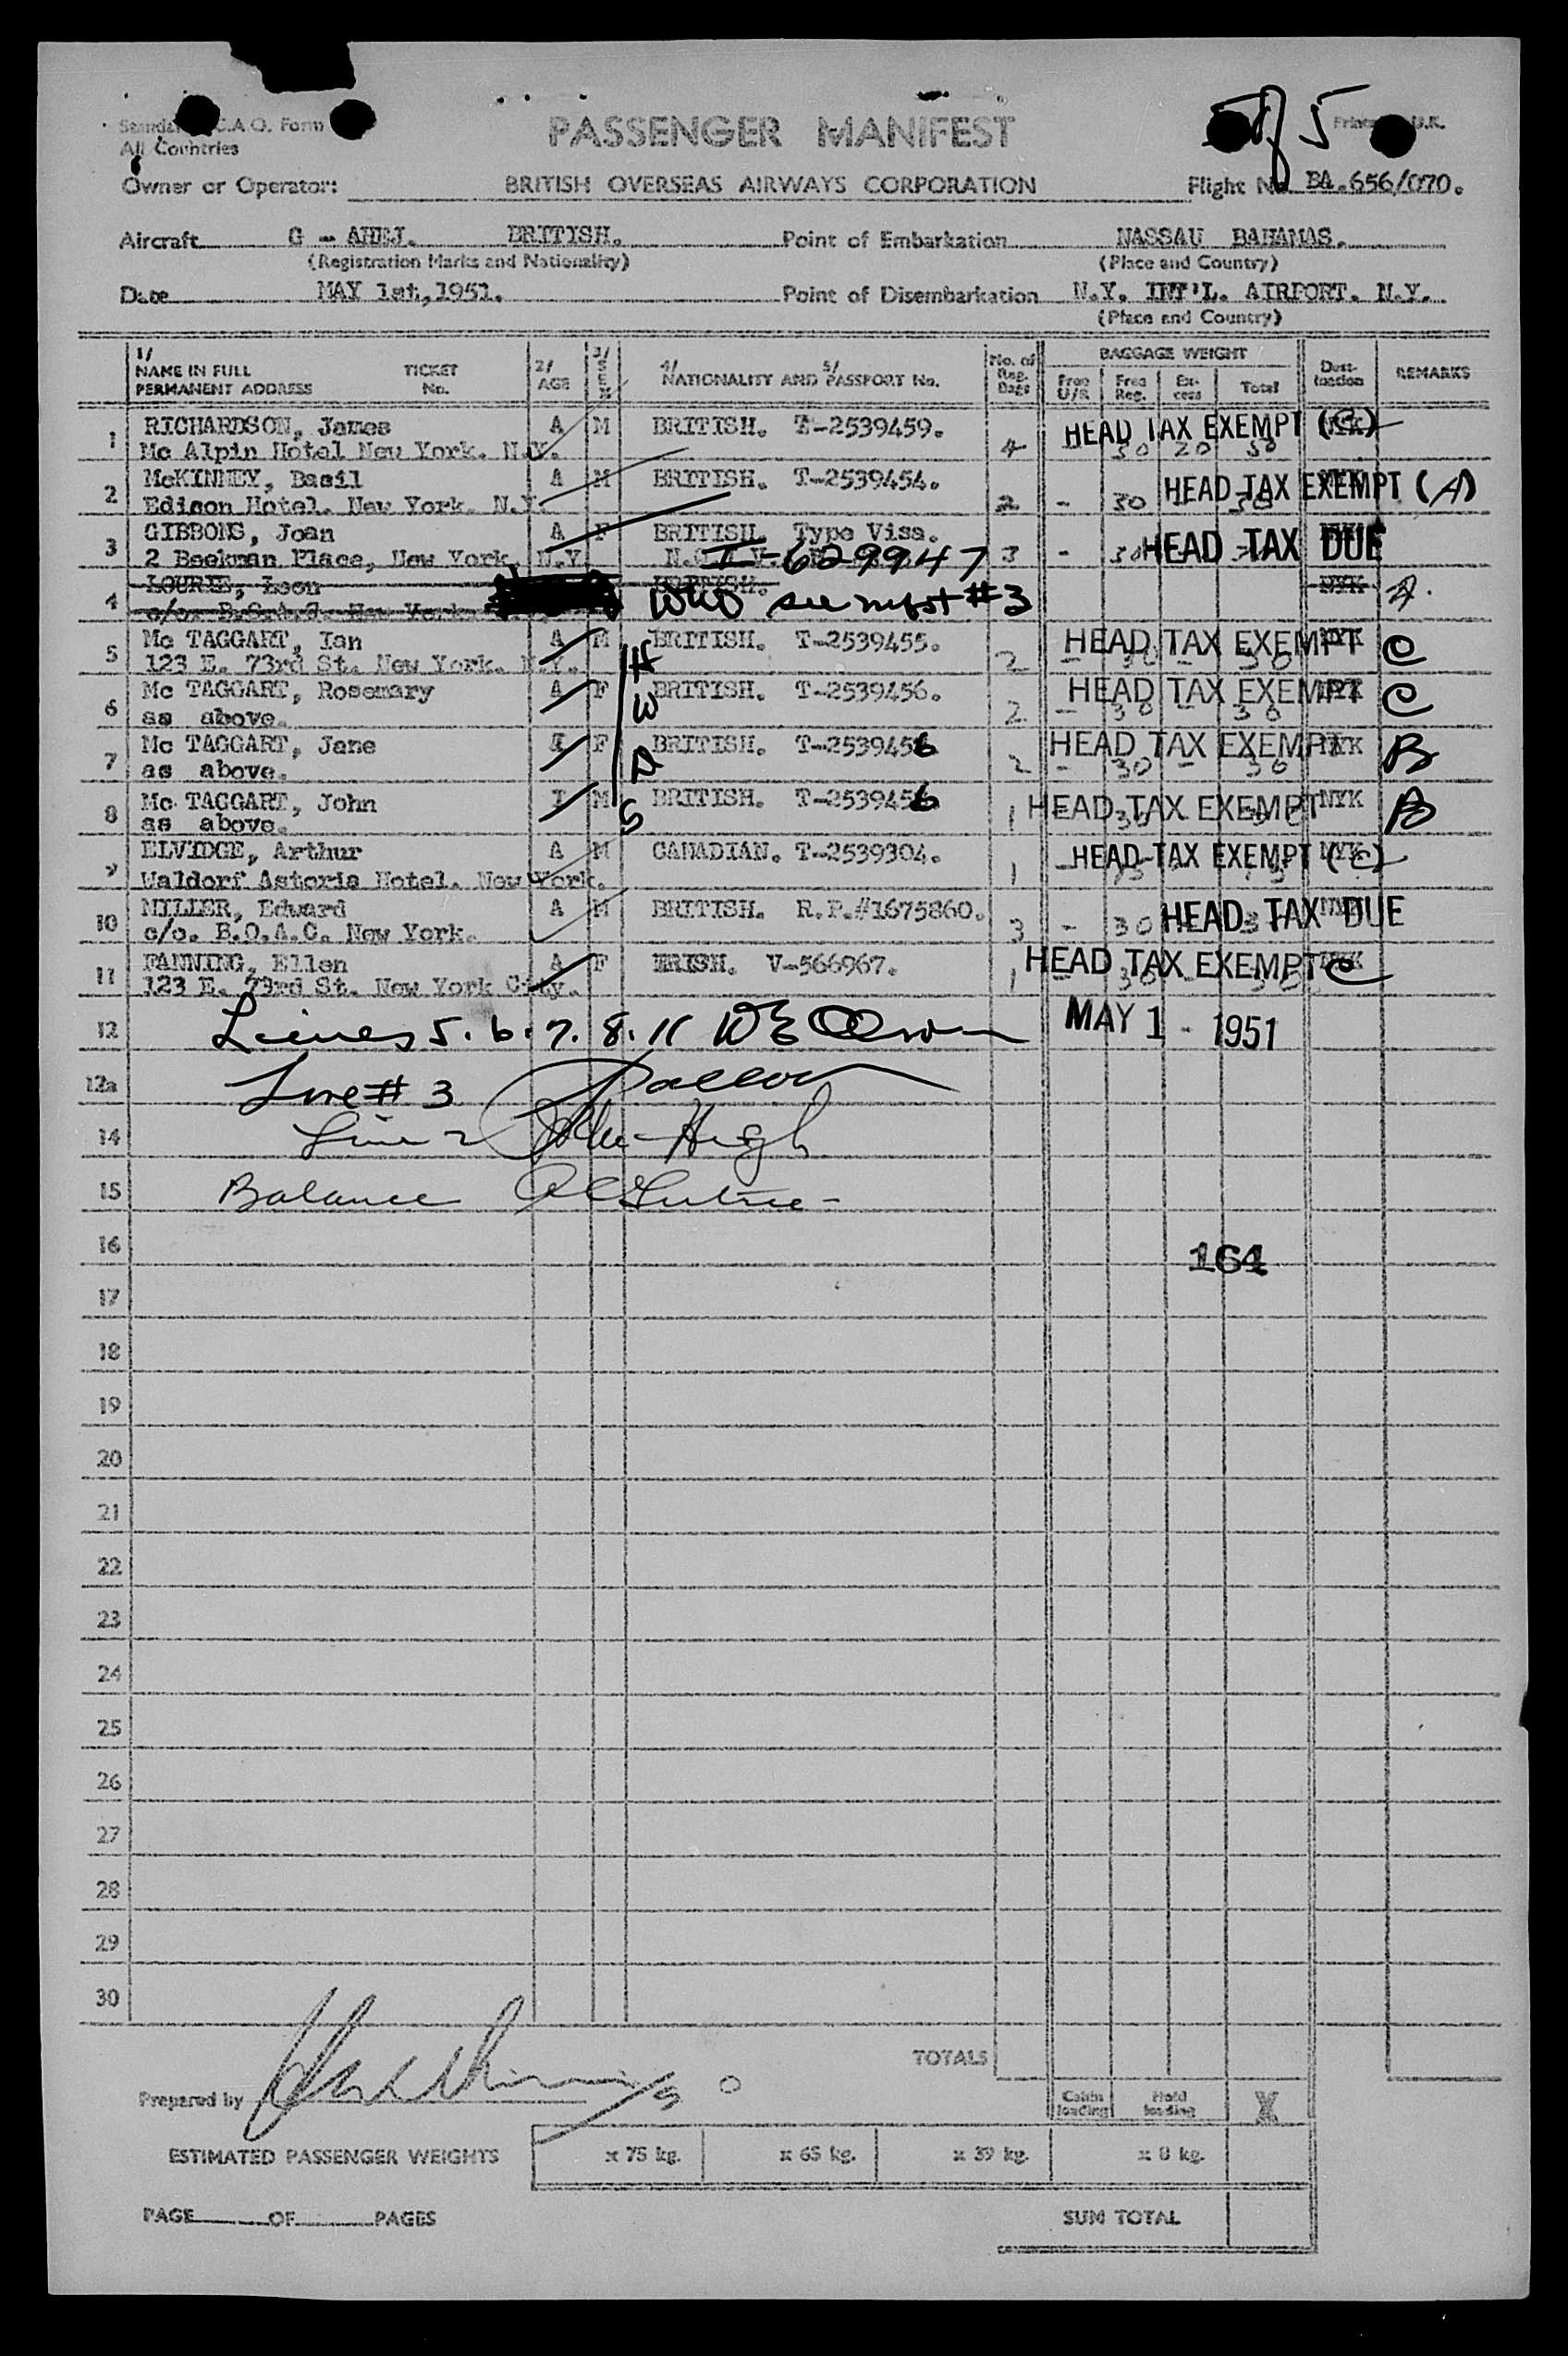 C.A.O. Form
All Countries
PASSENGER MANIFEST
of 5
U.K.
Owner or Operator: BRITISH OVERSEAS AIRWAYS CORPORATION Flight No. BA.656/070.
Aircraft BRITISH. Point of Embarkation NASSAU BAHAMAS.
(Registration Marks and Nationality) (Place and Country)
Date MAY 1st,1951. Point of Disembarkation N.Y. INT'L. AIRPORT. N.Y.
(Place and Country)
1/ NAME IN FULL PERMANENT ADDRESS TICKET No. 2/ AGE 3/ SEX 4/ NATIONALITY AND 5/ PASSPORT No. No. of Reg. Bags BAGGAGE WEIGHT Free U/R Free Reg. Excess Total Destination REMARKS
1 RICHARDSON, James A M BRITISH. T-2539459. 4 30 20 50 HEAD TAX EXEMPT (C)
Mc Alpin Hotel New York. N.Y.
2 McKINNEY, Basil A M BRITISH. T-2539454. 2 - 30 HEAD TAX EXEMPT (A)
Edison Hotel. New York. N.Y.
3 GIBBONS, Joan A F BRITISH. Type Visa. 3 - 30 HEAD TAX DUE
2 Beekman Place, New York. N.Y. I-629947
4 LOURIE, Leon BRITISH. NYK
c/o. B.O.A.C. New York. see mfst #3
5 Mc TAGGART, Ian A M H BRITISH. T-2539455. 2 - 30 - 30 HEAD TAX EXEMPT NYK C
123 E. 73rd St. New York. N.Y.
6 Mc TAGGART, Rosemary A F W BRITISH. T-2539456. 2 - 30 - 30 HEAD TAX EXEMPT NYK C
as above.
7 Mc TAGGART, Jane I F D BRITISH. T-2539456 2 - 30 - 30 HEAD TAX EXEMPT NYK B
as above.
8 Mc TAGGART, John I M S BRITISH. T-2539456 1 HEAD TAX EXEMPT NYK B
as above.
9 ELVIDGE, Arthur A M CANADIAN. T-2539304. 1 HEAD TAX EXEMPT NYK (C)
Waldorf Astoria Hotel. New York.
10 MILLER, Edward A M BRITISH. R.P.#1675860. 3 - 30 HEAD TAX DUE
c/o. B.O.A.C. New York.
11 FANNING, Ellen A F IRISH. V-566967. 1 HEAD TAX EXEMPT C
123 E. 73rd St. New York City.
12 Lines 5. 6. 7. 8. 11 MAY 1 - 1951
12a Line # 3
14 Line 2
15 Balance
16 164
17
18
19
20
21
22
23
24
25
26
27
28
29
30
TOTALS
Prepared by Cabin loading Hold loading X
ESTIMATED PASSENGER WEIGHTS x 75 kg. x 65 kg. x 39 kg. x 8 kg.
PAGE OF PAGES SUM TOTAL